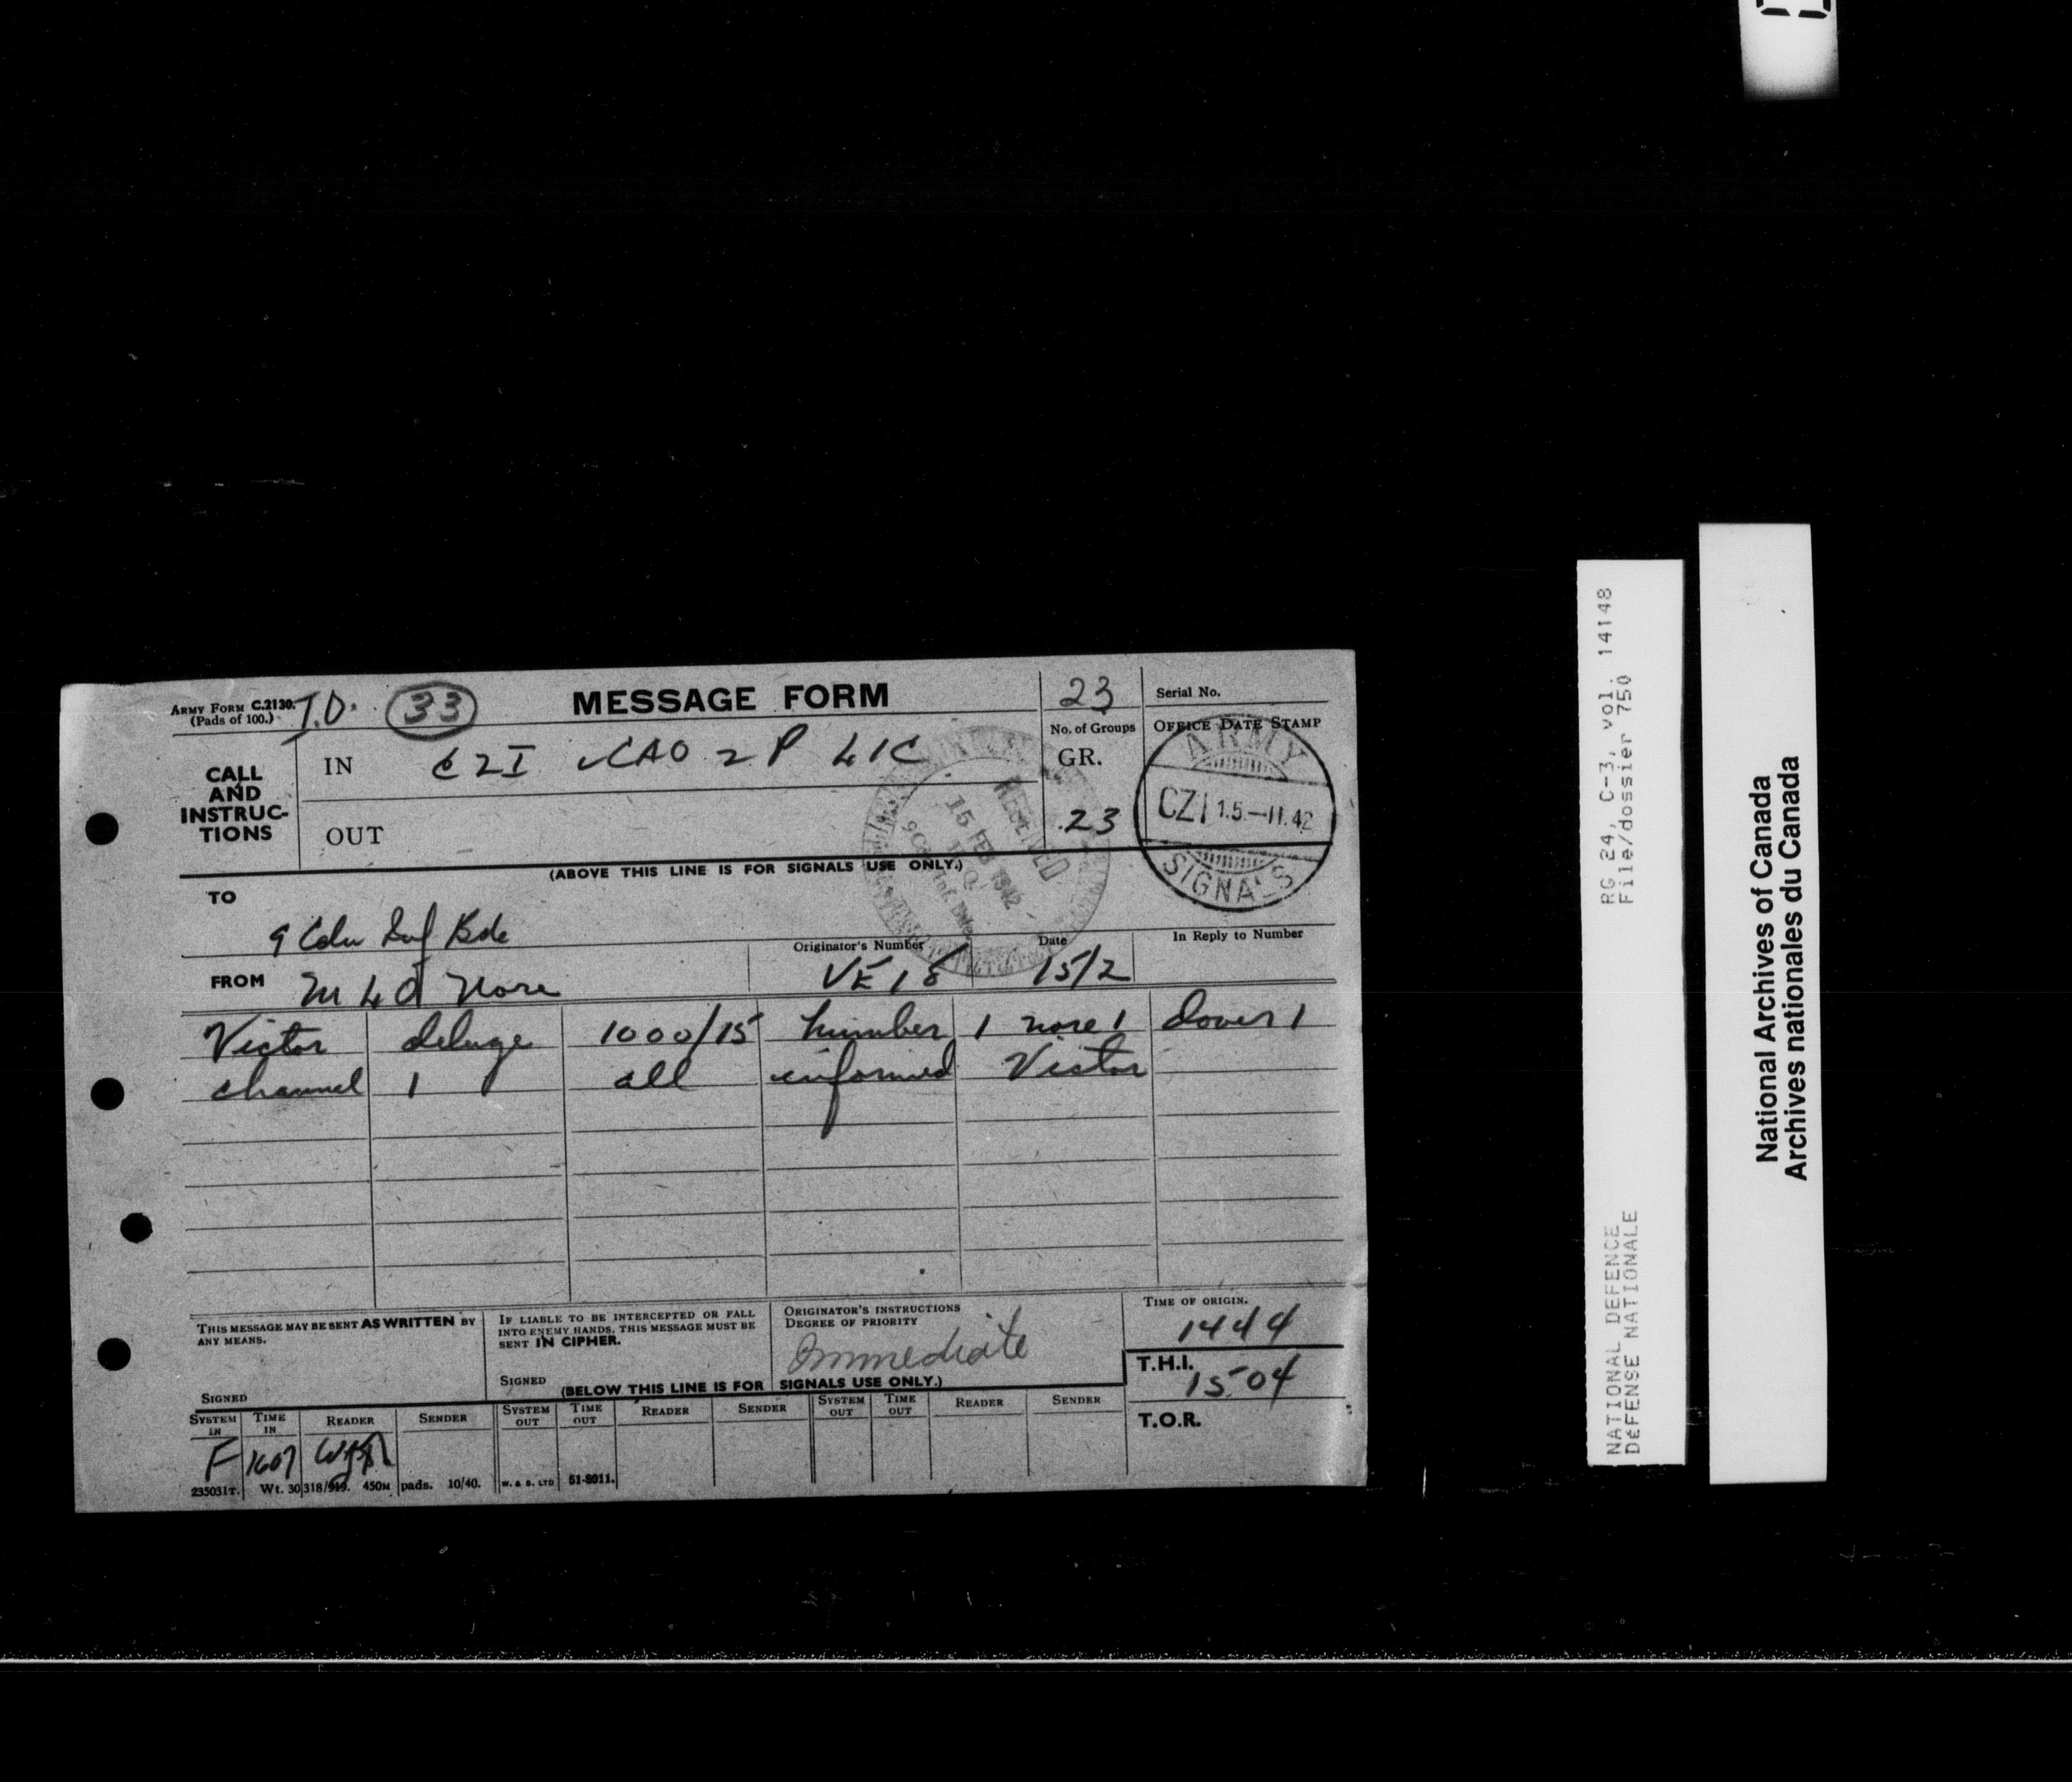 ARMY FORM C.2130.
(Pads of 100.)
I.O.
33
MESSAGE FORM
23
No. of Groups
GR.
23
Serial No.
OFFICE DATE STAMP
ARMY
CZI 15.—II.42
SIGNALS
CALL
AND
INSTRUC-
TIONS
IN CZI CAO 2 P LIC
OUT
RECEIVED
15 FEB 1942
H.Q.
(ABOVE THIS LINE IS FOR SIGNALS USE ONLY.)
TO
9 Cdn Inf Bde
FROM M L O Nore
Originator's Number
VE 18
Date
15/2
In Reply to Number
Victor deluge 1000/15 humber 1 nore 1 dover 1
channel 1 all informed Victor
THIS MESSAGE MAY BE SENT AS WRITTEN BY
ANY MEANS.
SIGNED
IF LIABLE TO BE INTERCEPTED OR FALL
INTO ENEMY HANDS, THIS MESSAGE MUST BE
SENT IN CIPHER.
SIGNED
ORIGINATOR'S INSTRUCTIONS
DEGREE OF PRIORITY
Immediate
TIME OF ORIGIN.
1444
T.H.I.
1504
T.O.R.
(BELOW THIS LINE IS FOR SIGNALS USE ONLY.)
SYSTEM IN TIME IN READER SENDER SYSTEM OUT TIME OUT READER SENDER SYSTEM OUT TIME OUT READER SENDER
F 1607
235031T. Wt. 30318/919. 450M pads. 10/40. W. & S. LTD 51-8011.
RG 24, C-3, vol. 14148
File/dossier 750
NATIONAL DEFENCE
DÉFENSE NATIONALE
National Archives of Canada
Archives nationales du Canada